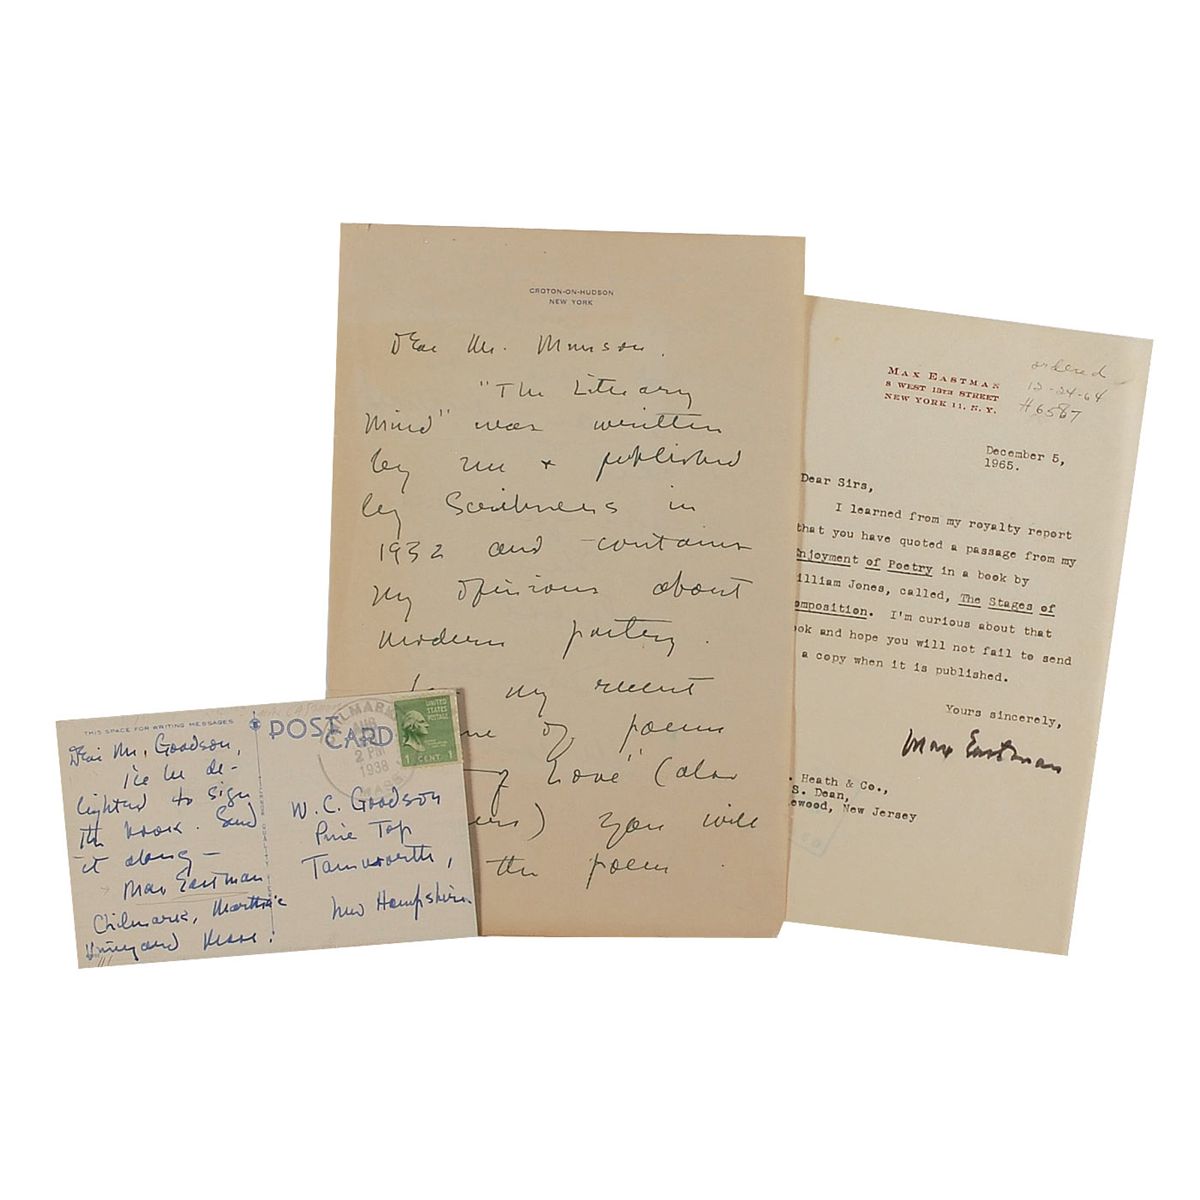 CROTON-ON-HUDSON
NEW YORK
Dear Mr. Munson.
"The Literary
Mind" was written
by me + published
by Scribners in
1932 and contains
my opinions about
modern poetry.
my recent
of poems
Love" (also
) you will
the poem.
MAX EASTMAN
8 WEST 13TH STREET
NEW YORK 11, N. Y.
ordered
12-24-64
#6587
December 5,
1965.
Dear Sirs,
I learned from my royalty report
that you have quoted a passage from my
njoyment of Poetry in a book by
illiam Jones, called, The Stages of
omposition. I'm curious about that
ook and hope you will not fail to send
a copy when it is published.
Yours sincerely,
Max Eastman
. Heath & Co.,
S. Dean,
lewood, New Jersey
THIS SPACE FOR WRITING MESSAGES
POST CARD
Dear Mr. Goodson,
I'll be de-
lighted to sign
the book. Send
it along —
Max Eastman
Chilmark, Martha's
Vineyard Mass.
CHILMARK
AUG
2 PM
1938
MASS
UNITED
STATES
POSTAGE
1 CENT 1
W. C. Goodson
Pine Top
Tamworth,
New Hampshire.